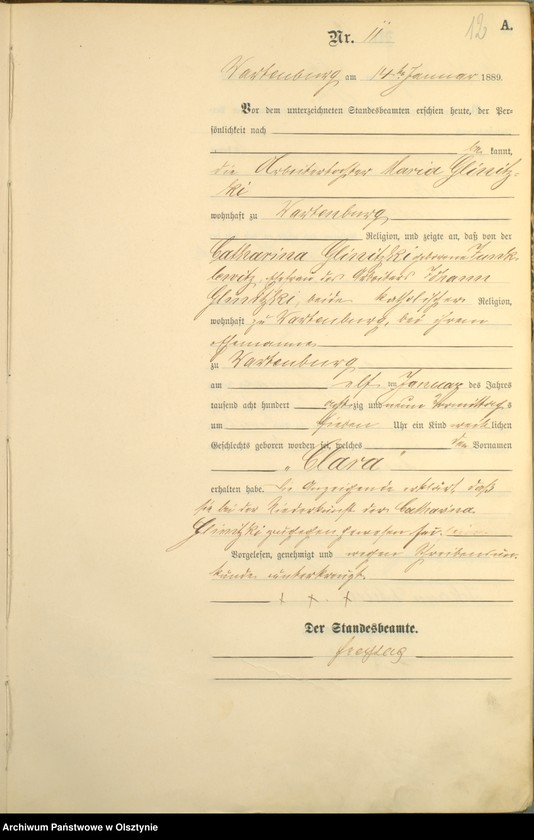 12 A.
Nr. 11
Wartenburg am 14ten Januar 1889.
Vor dem unterzeichneten Standesbeamten erschien heute, der Per-
sönlichkeit nach
be kannt,
die Arbeitertochter Maria Glinitz-
ki
wohnhaft zu Wartenburg
Religion, und zeigte an, daß von der
Catharina Glinitzki geborene
Ehefrau des Arbeiters Johann
Glinitzki, beide katholischer Religion,
wohnhaft zu Wartenburg, bei ihrem
Ehemanne
zu Wartenburg
am elf ten Januar des Jahres
tausend acht hundert achtzig und neun Vormittags
um sieben Uhr ein Kind weiblichen
Geschlechts geboren worden sei, welches den Vornamen
„Clara“
erhalten habe. Die Anzeigende erklärt, daß
sie bei der Niederkunft der Catharina
Glinitzki zugegen gewesen sei.
Vorgelesen, genehmigt und wegen Schreibensun-
kunde unterkreuzt
+ + +
Der Standesbeamte.
Freytag
Archiwum Państwowe w Olsztynie